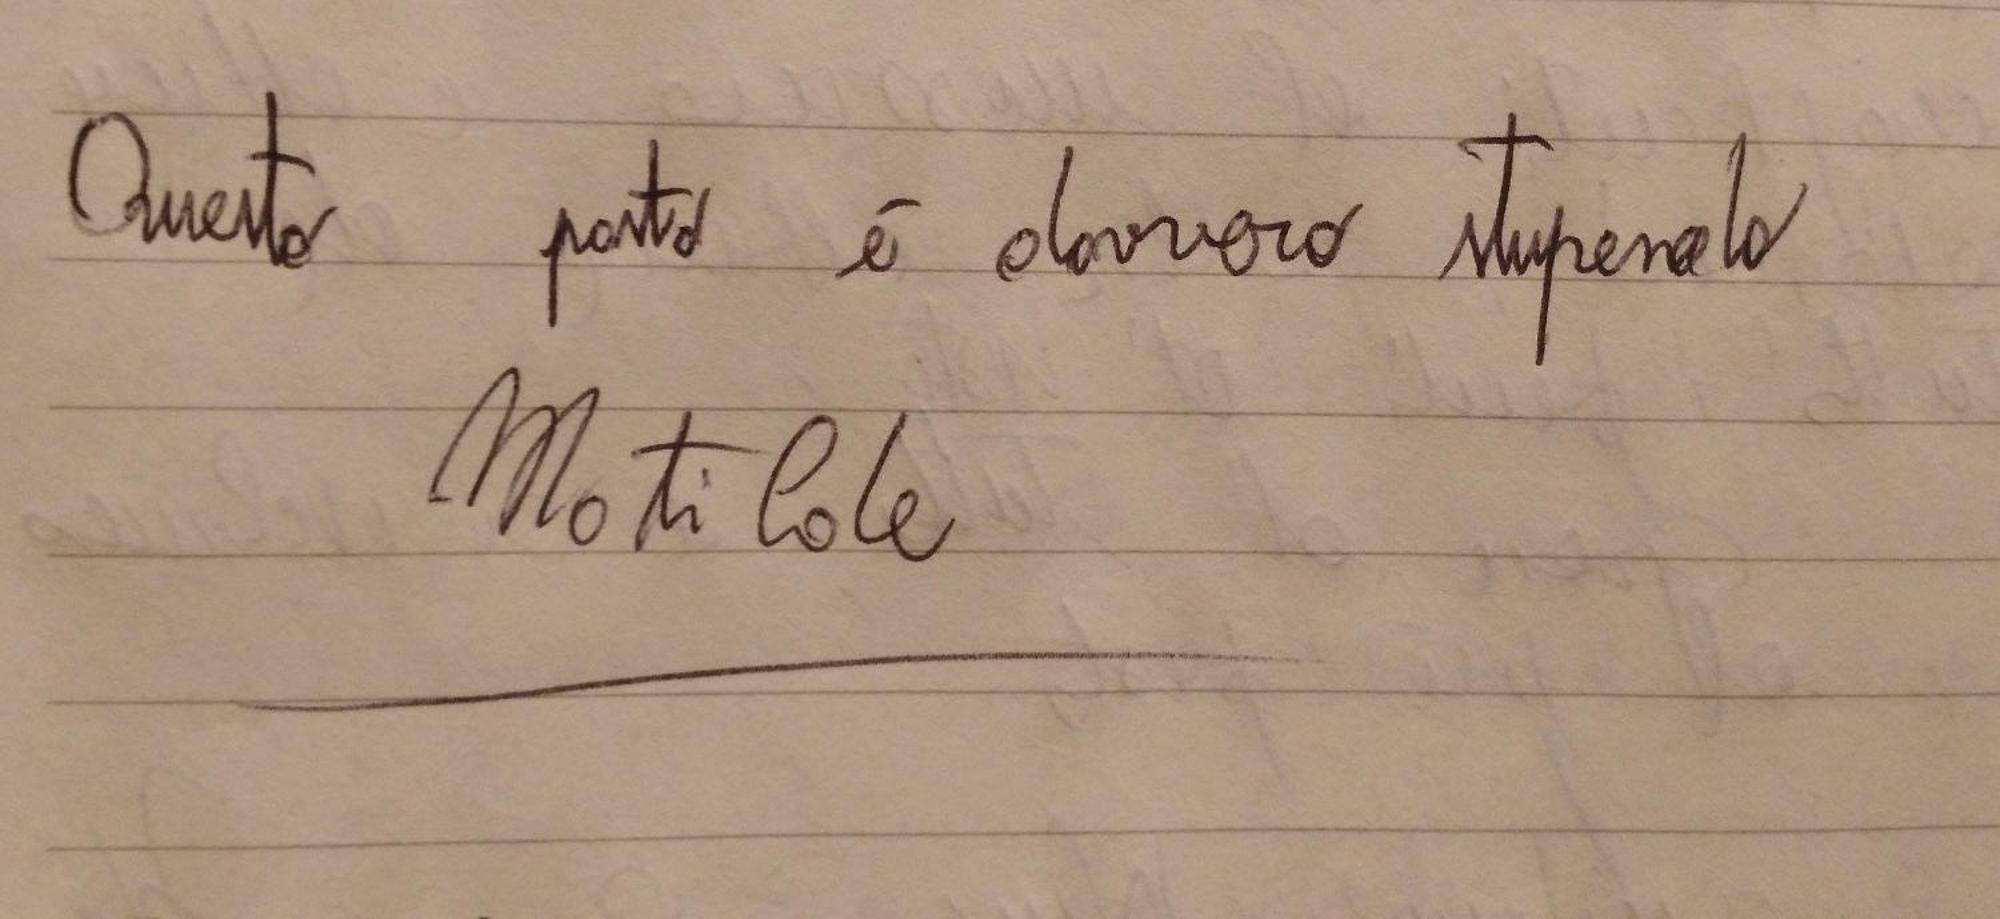 Questo posto è davvero stupendo
Matilde